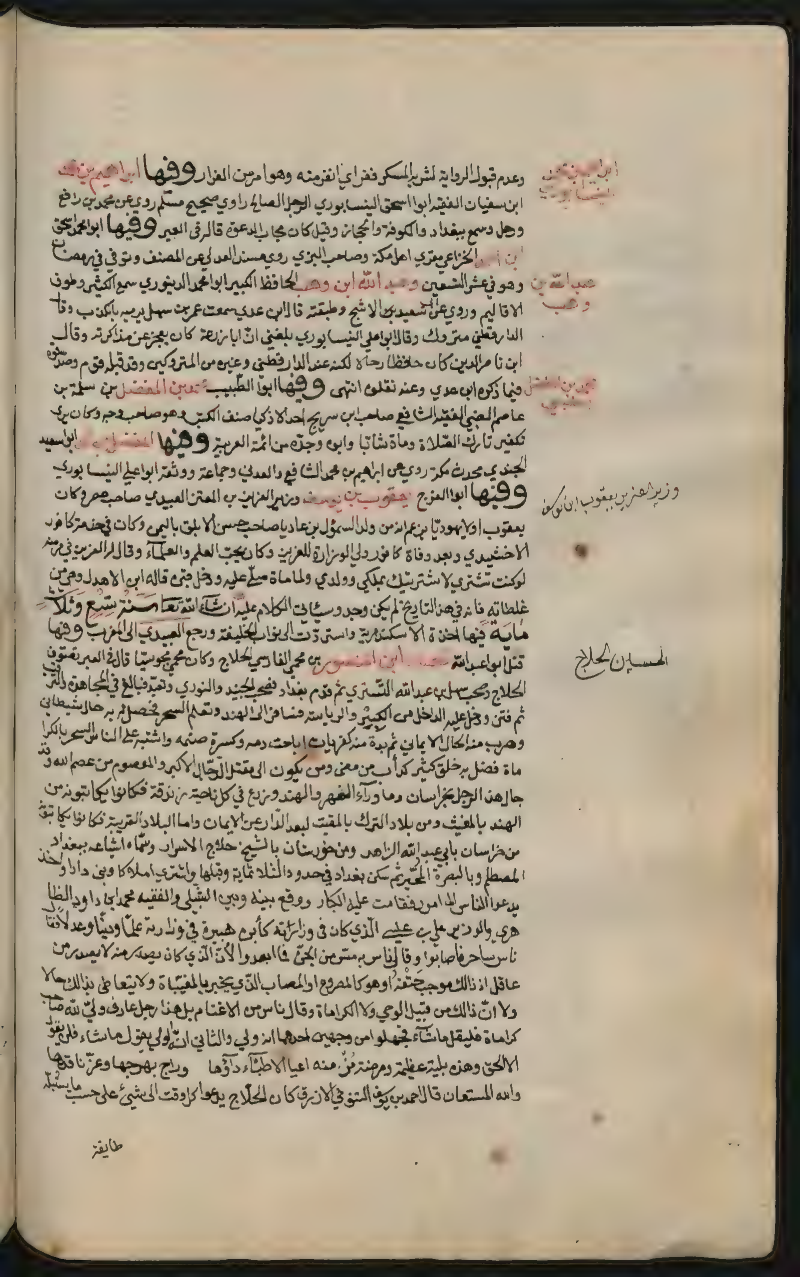 وعدم قبول الرواية لشربه المسكر فقرأي انفرمنه وهو امر من الفرار وفيها ابراهيم بن محمد
ابن سفيان الفقيه ابو اسحق النيسابوري الرجل الصالح راوي صحيح مسلم روى عن محمد بن رافع
ورحل وسمع ببغداد والكوفة والحجاز وقيل كان مجاب الدعوة قاله في العبر وفيها ابو محمد اسحق
ابن احمد الخزاعي مقرى اهل مكة وصاحب البزي روى مسند العدني عن المصنف وتوفي في رمضان
وهو في عشر التسعين وعبد الله ابن وهب الحافظ الكبير ابو محمد الدينوري سمع الكثير وطوف
الاقاليم وروى عن ابي سعيد بن الاشج وطبقته قال ابن عدي سمعت عمر بن سهل يرميه بالكذب وقال
الدارقطني متروك وقال ابو علي النيسابوري بلغني ان ابا زرعة كان يعجز عن مذاكرته وقال
ابن ناصر الدين كان حافظا رحالا لكنه عند الدارقطني وغيره من المتروكين وقد قبله قوم وصدقوه
فيما ذكره ابن عدي وعنه نقلوه انتهى وفيها ابو الطيب محمد بن المفضل بن سلمة بن
عاصم الضبي الفقيه الشافعي صاحب ابن سريج احد الاذكياء صنف الكتب وهو صاحب وجه وكان يرى
تكفير تارك الصلاة ومات شابا وابوه وجده من ائمة العربية وفيها المفضل بن محمد ابو سعيد
الجندي محدث مكة روى عن ابراهيم بن محمد الشافعي والعدني وجماعة ووثقه ابو علي النيسابوري
وفيها ابو الفرج يعقوب بن يوسف وزير العزيز بن المعز العبيدي صاحب مصر وكان
يعقوب اولا يهوديا يزعم انه من ولد السمؤل بن عاديا صاحب حصن الابلق باليمن وكان في خدمة كافور
الاخشيدي وبعد وفاة كافور ولي الوزارة للعزيز وكان يحب العلم والعلماء وقال له العزيز في مرضه
لو كنت تشترى لاشتريتك بملكي وولدي ولما مات صلى عليه ودخل قبره قاله ابن الاهدل وهي من
غلطاته فانه في هذا التاريخ لم يكن وجد وسيأتي الكلام عليه ان شاء الله تعالى سنة تسع وثلاث
مائة فيها اخذة الاسكندرية واستردت الى نواب الخليفة ورجع العبيدي الى المغرب وفيها
قتل ابو عبد الله حسين ابن المنصور بن محمي الفارسي الحلاج وكان محمي مجوسيا قال في العبر تصوف
الحلاج وصحب سهل بن عبد الله التستري ثم قدم بغداد فصحب الجنيد والنوري وتعبد فبالغ في المجاهدة والترهب
ثم فتن ودخل عليه الداخل من الكبر والرياسة فسافر الى الهند وتعلم السحر فحصل له به حال شيطاني
وهرب منه الحال الايماني ثم بدت منه كفريات اباحت دمه وكسرت صنمه واشتبه على الناس السحر بالكرا
مات فضل به خلق كثير كدأب من مضى ومن يكون الى مقتل الدجال الاكبر والمعصوم من عصم الله وقد
جال هذا الرجل بخراسان وما وراء النهر والهند وزرع في كل ناحية زندقة فكانوا يكاتبونه من
الهند بالمغيث ومن بلاد الترك بالمقيت لبعد الدار عن الايمان واما البلاد القريبة فكانوا يكاتبونه
من خراسان بابي عبد الله الزاهد ومن خورستان بالشيخ حلاج الاسرار وسماه اشياعه ببغداد
المصطلم وبالبصرة المحير ثم سكن بغداد في حدود الثلاثماية وقبلها واشترى املاكا وبنى دارا واخذ
يدعو الناس الى امور فقامت عليه الكبار ووقع بينه وبين الشبلي والفقيه محمد ابن داود الظا
هري والوزير علي بن عيسى الذي كان في وزارته كابن هبيرة في وزارته علما ودينا وعدلا فقال
ناس ساحر فاصابوا وقال ناس به مس من الجن فما ابعدوا لان الذي كان يصدر منه لا يصدر من
عاقل اذ ذلك موجب حتفه او هو كالمصروع او المصاب الذي يخبر بالمغيبات ولا يتعاطى بذلك حالا
ولا ان ذلك من قبيل الوحي ولا الكرامات وقال ناس من الاغتام بل هذا رجل عارف وولي لله صاحب
كرامات فليقل ما شاء فجهلوا من وجهين احدهما انه ولي والثاني ان الولي يقول ما شاء فلن يقول
الا الحق وهذه بلية عظيمة ومرضة مزمنة اعيا الاطباء دآؤها وراج بهرجها وعز ناقدها
والله المستعان قال احمد بن يوسف التنوخي الازرق كان الحلاج يدعوا كل وقت الى شيئ على حسب ما يستبله
طايفة
ابراهيم بن محمد
النيسابوري
عبد الله بن
وهب
محمد بن المفضل
الضبي
وزير العزيز يعقوب ابن يوسف
الحسين الحلاج